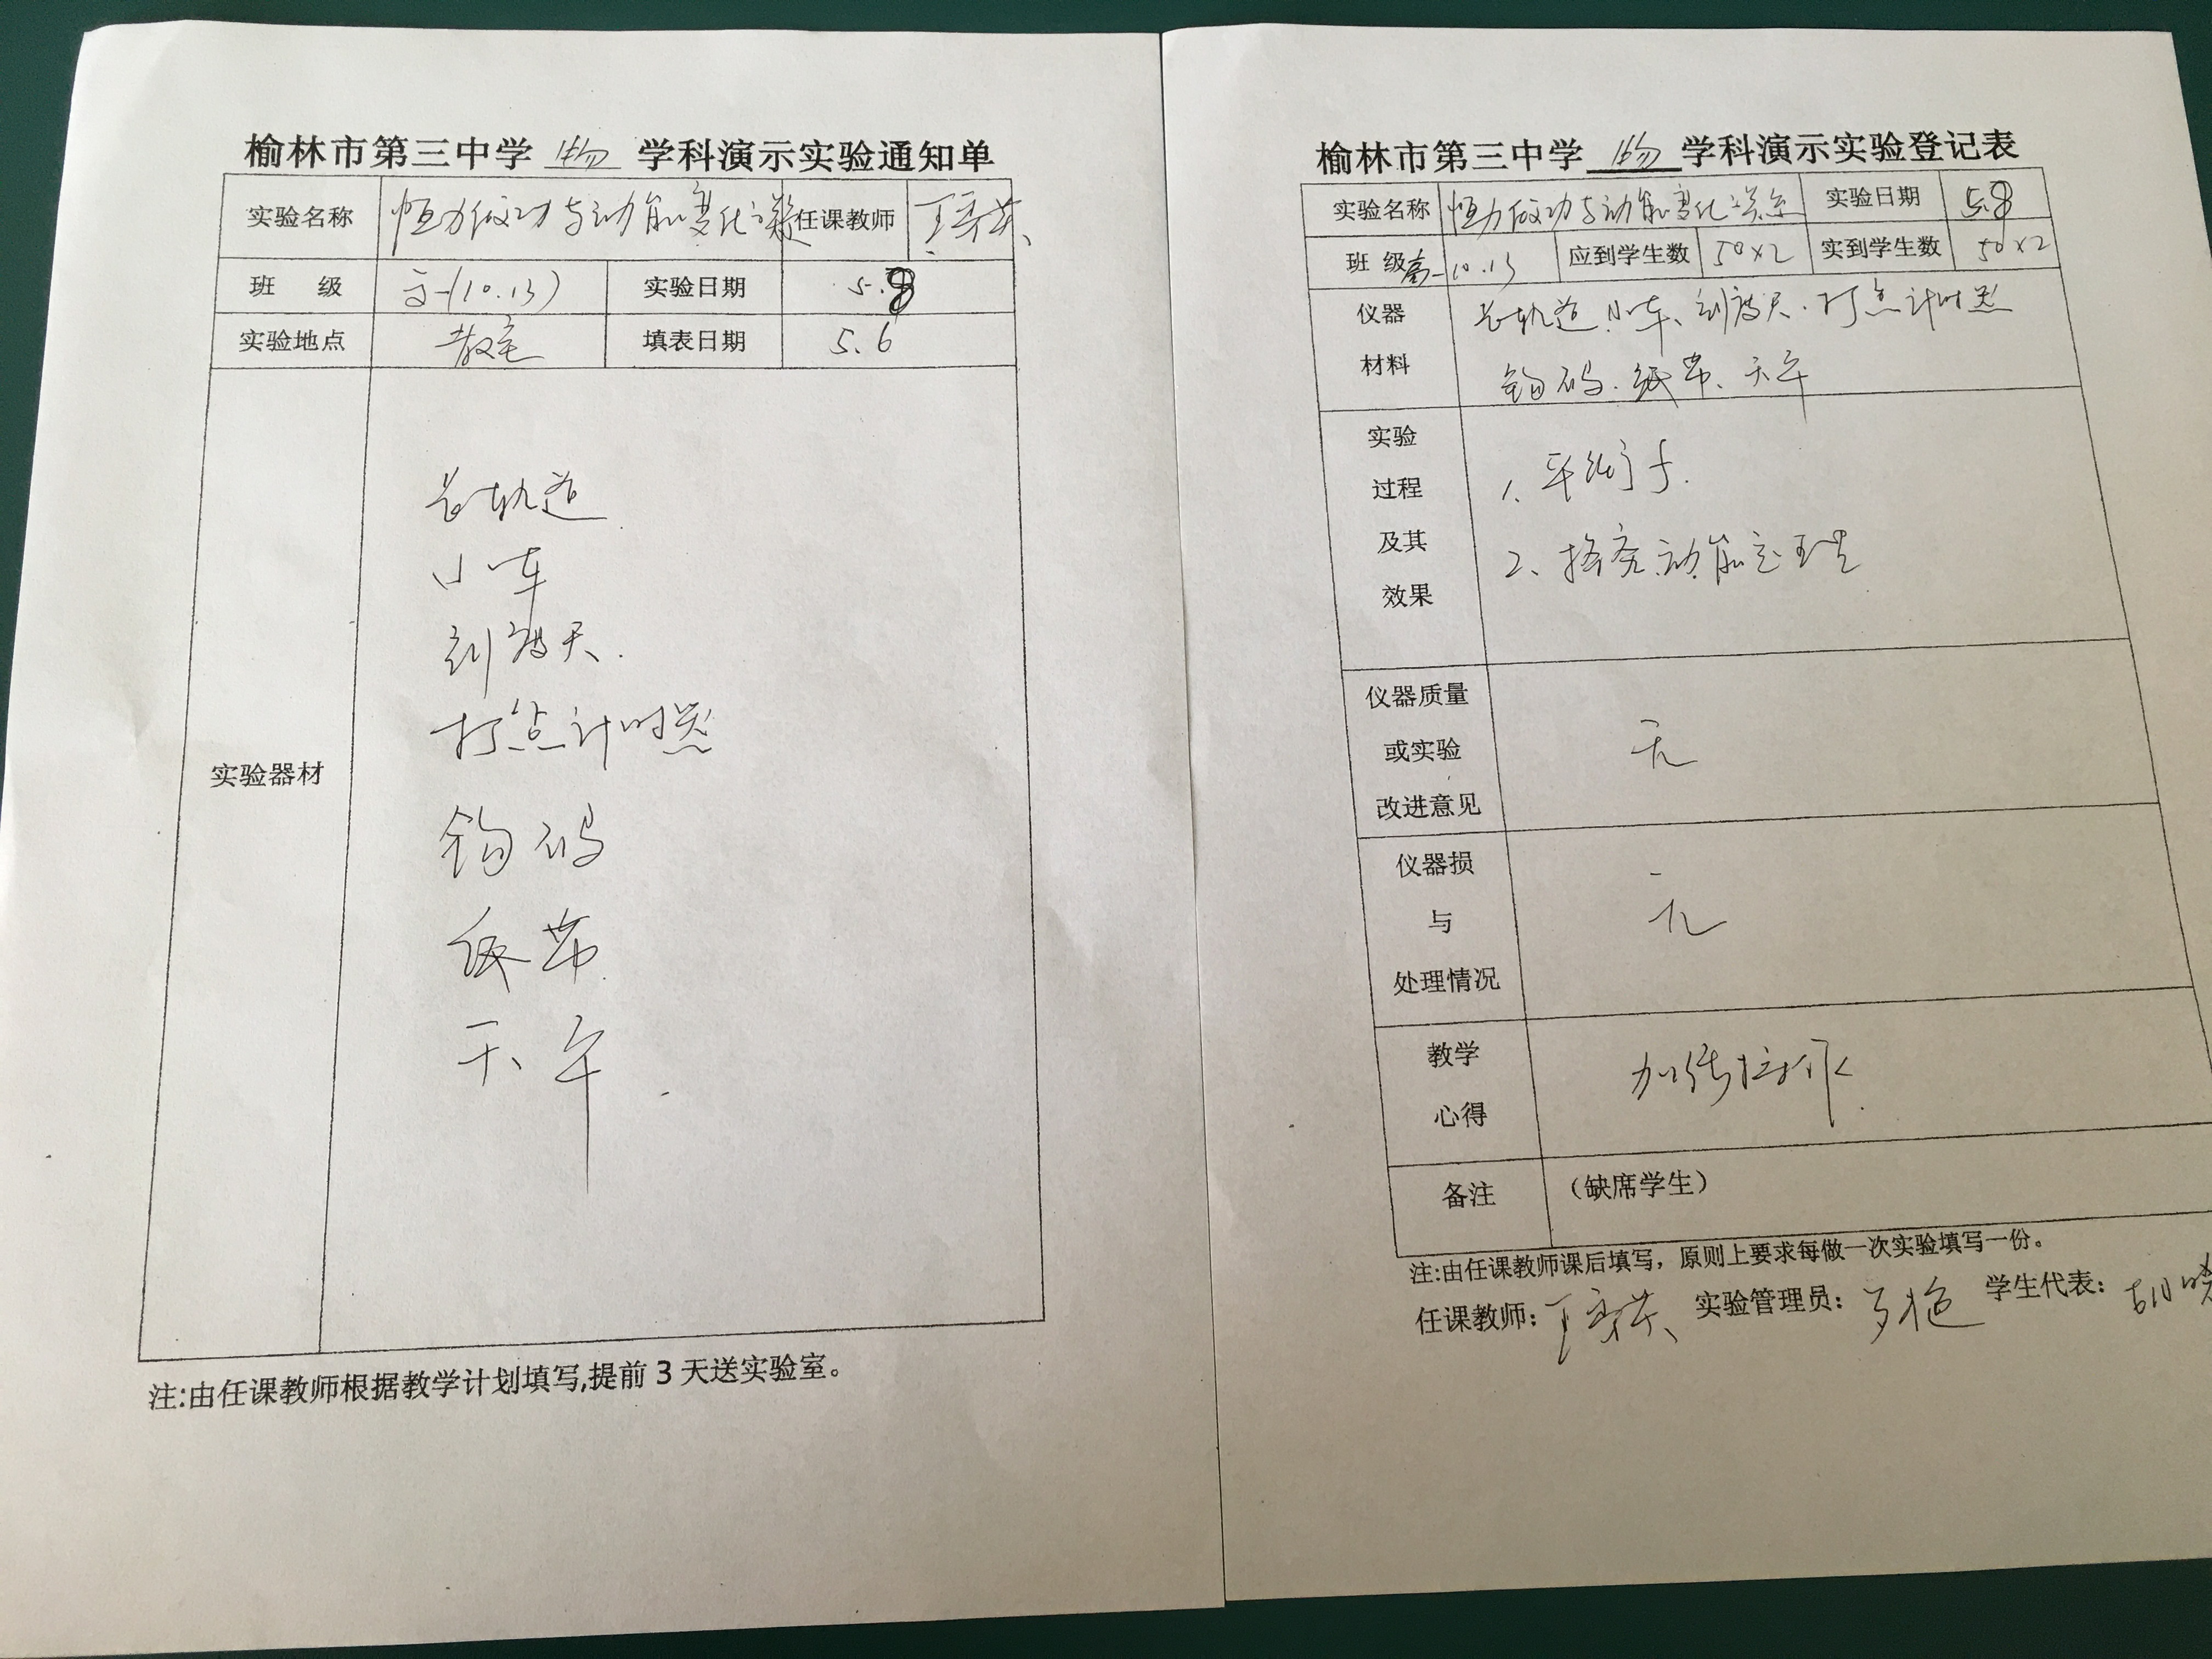 榆林市第三中学 物 学科演示实验通知单
实验名称 恒力做功与动能变化关系 任课教师
班 级 高一(10.13) 实验日期 5.8
实验地点 教室 填表日期 5.6
实验器材
长轨道
小车
刻度尺.
打点计时器
钩码
纸带
天平
注:由任课教师根据教学计划填写,提前 3 天送实验室。
榆林市第三中学 物 学科演示实验登记表
实验名称 恒力做功与动能变化关系 实验日期 5.8
班 级 高一10.13 应到学生数 50×2 实到学生数 50×2
仪器 材料
长轨道、小车、刻度尺.打点计时器
钩码.纸带、天平
实验 过程 及其 效果
1、平衡f.
2、探究动能定理
仪器质量 或实验 改进意见
无
仪器损 与 处理情况
无
教学 心得
备注 (缺席学生)
注:由任课教师课后填写，原则上要求每做一次实验填写一份。
任课教师: 实验管理员: 学生代表: